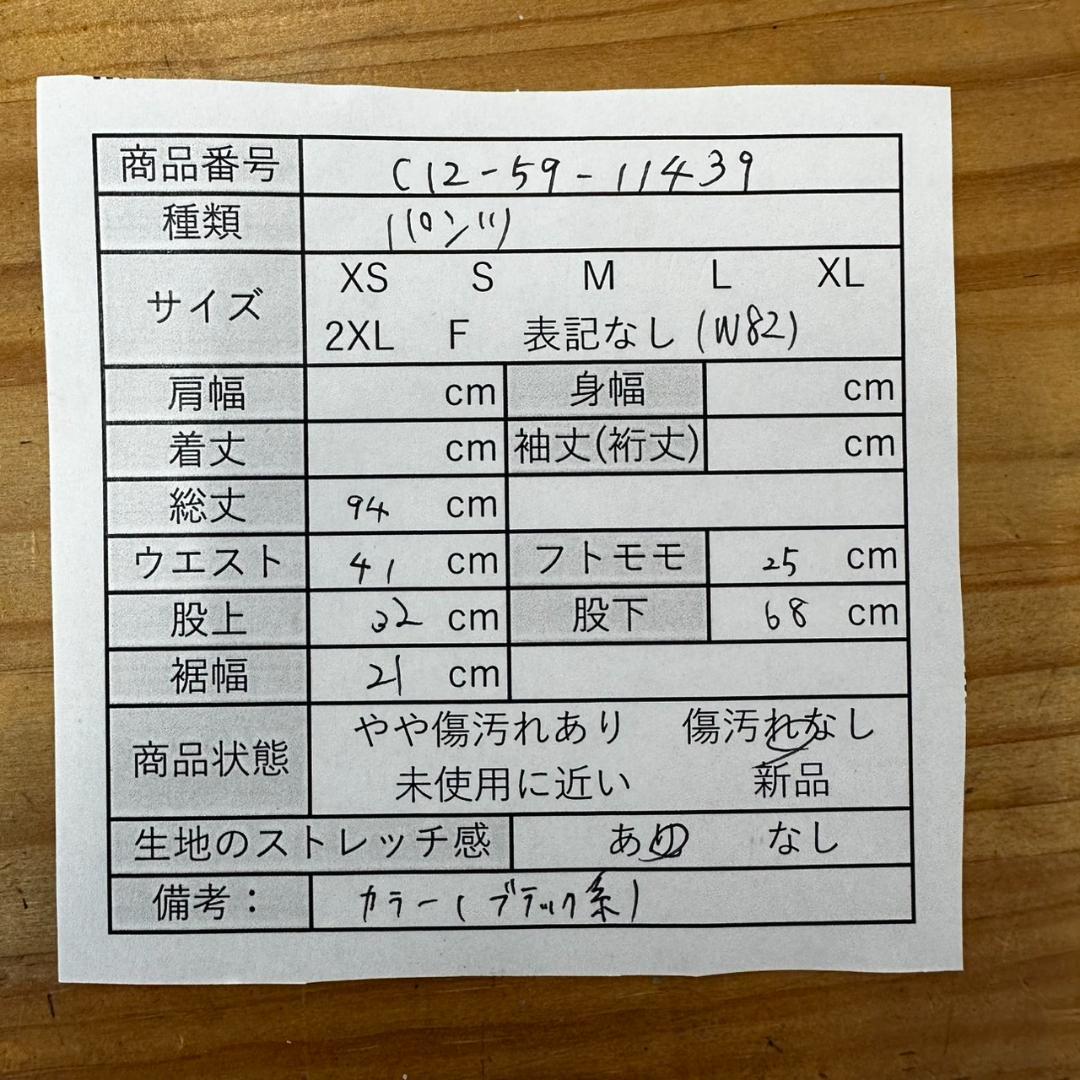 商品番号 C12-59-11439
種類 パンツ
サイズ XS S M L XL
2XL F 表記なし (W82)
肩幅 cm 身幅 cm
着丈 cm 袖丈(裄丈) cm
総丈 94 cm
ウエスト 41 cm フトモモ 25 cm
股上 32 cm 股下 68 cm
裾幅 21 cm
商品状態 やや傷汚れあり 傷汚れなし
未使用に近い 新品
生地のストレッチ感 あり なし
備考： カラー(ブラック系)